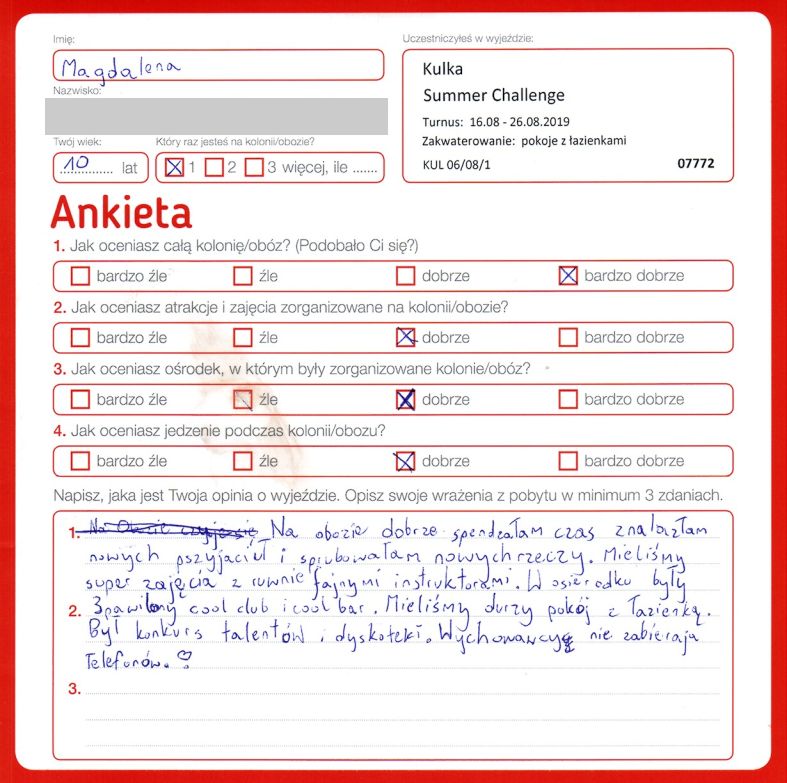 Imię:
Magdalena
Nazwisko:
Twój wiek:
Który raz jesteś na kolonii/obozie?
10 lat
1 2 3 więcej, ile .......
Uczestniczyłeś w wyjeździe:
Kulka
Summer Challenge
Turnus: 16.08 - 26.08.2019
Zakwaterowanie: pokoje z łazienkami
KUL 06/08/1 07772
Ankieta
1. Jak oceniasz całą kolonię/obóz? (Podobało Ci się?)
bardzo źle źle dobrze bardzo dobrze
2. Jak oceniasz atrakcje i zajęcia zorganizowane na kolonii/obozie?
bardzo źle źle dobrze bardzo dobrze
3. Jak oceniasz ośrodek, w którym były zorganizowane kolonie/obóz?
bardzo źle źle dobrze bardzo dobrze
4. Jak oceniasz jedzenie podczas kolonii/obozu?
bardzo źle źle dobrze bardzo dobrze
Napisz, jaka jest Twoja opinia o wyjeździe. Opisz swoje wrażenia z pobytu w minimum 3 zdaniach.
1. Na obozie dobrze spendzałam czas znalazłam
nowych pszyjaciuł i sprubowałam nowych rzeczy. Mieliśmy
super zajęcia z rownie fajnymi instruktorami. W osierodku były
2. 3 pawilony cool club i cool bar. Mieliśmy durzy pokój z łazienką.
Był konkurs talentów i dyskoteki. Wychowawcy nie zabieraja
Telefonów.
3.